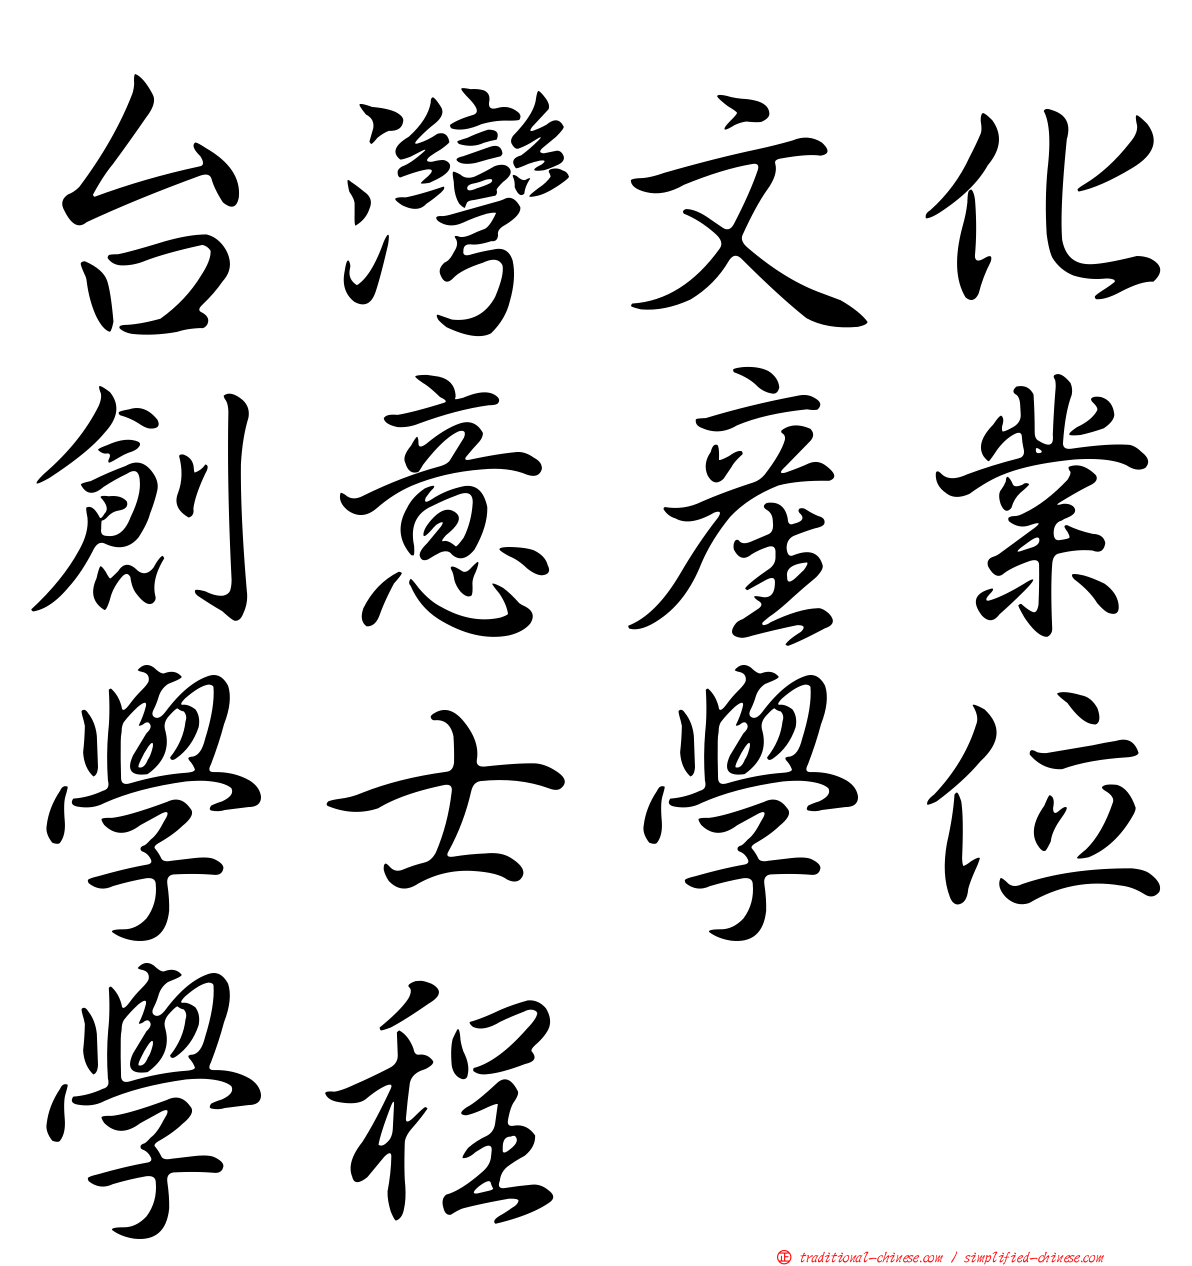 台灣文化
創意產業
學士學位
學程
㊣ traditional-chinese.com / simplified-chinese.com